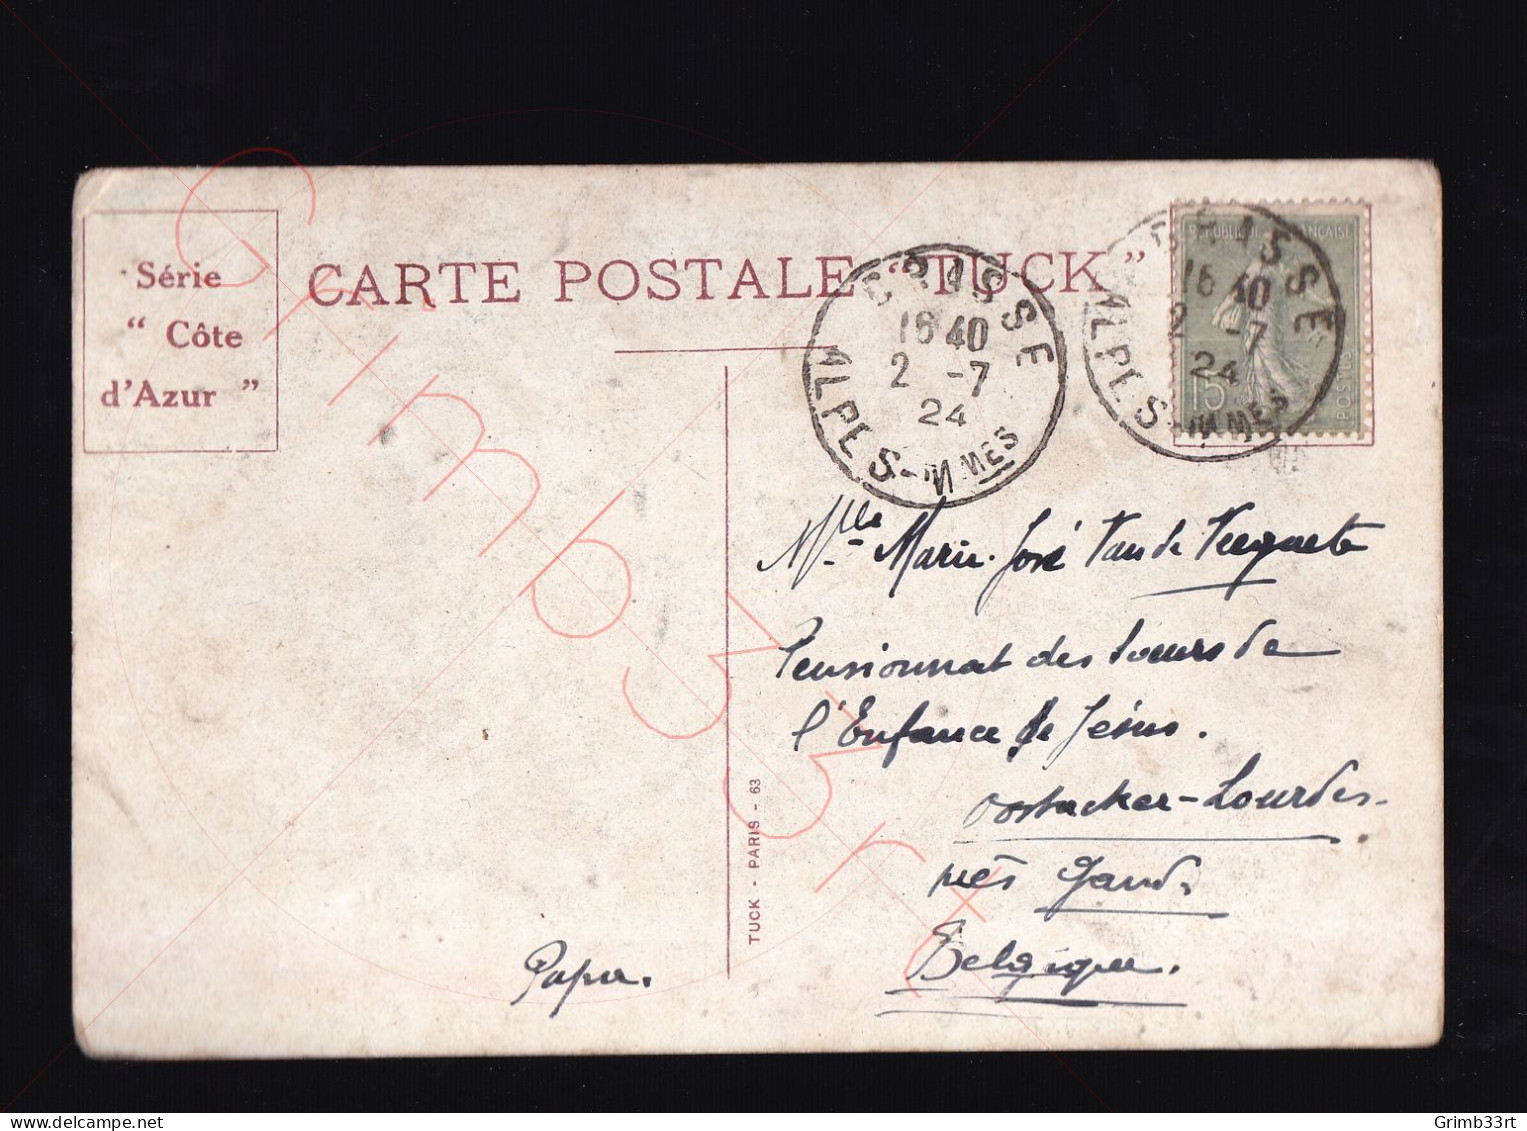 Série
“ Côte
d'Azur ”
CARTE POSTALE “TUCK”
GRASSE
16 40
2 -7
24
ALPES-MMES
GRASSE
16 40
2 -7
24
ALPES-MMES
REPUBLIQUE FRANÇAISE
15
POSTES
Mlle Marie-José Van de
Pensionnat des Soeurs de
l'Enfance de Jésus.
Oostacker-Lourdes.
près Gand.
Belgique.
Papa.
TUCK - PARIS - 63
Grimb33rt
delcampe.net
Grimb33rt